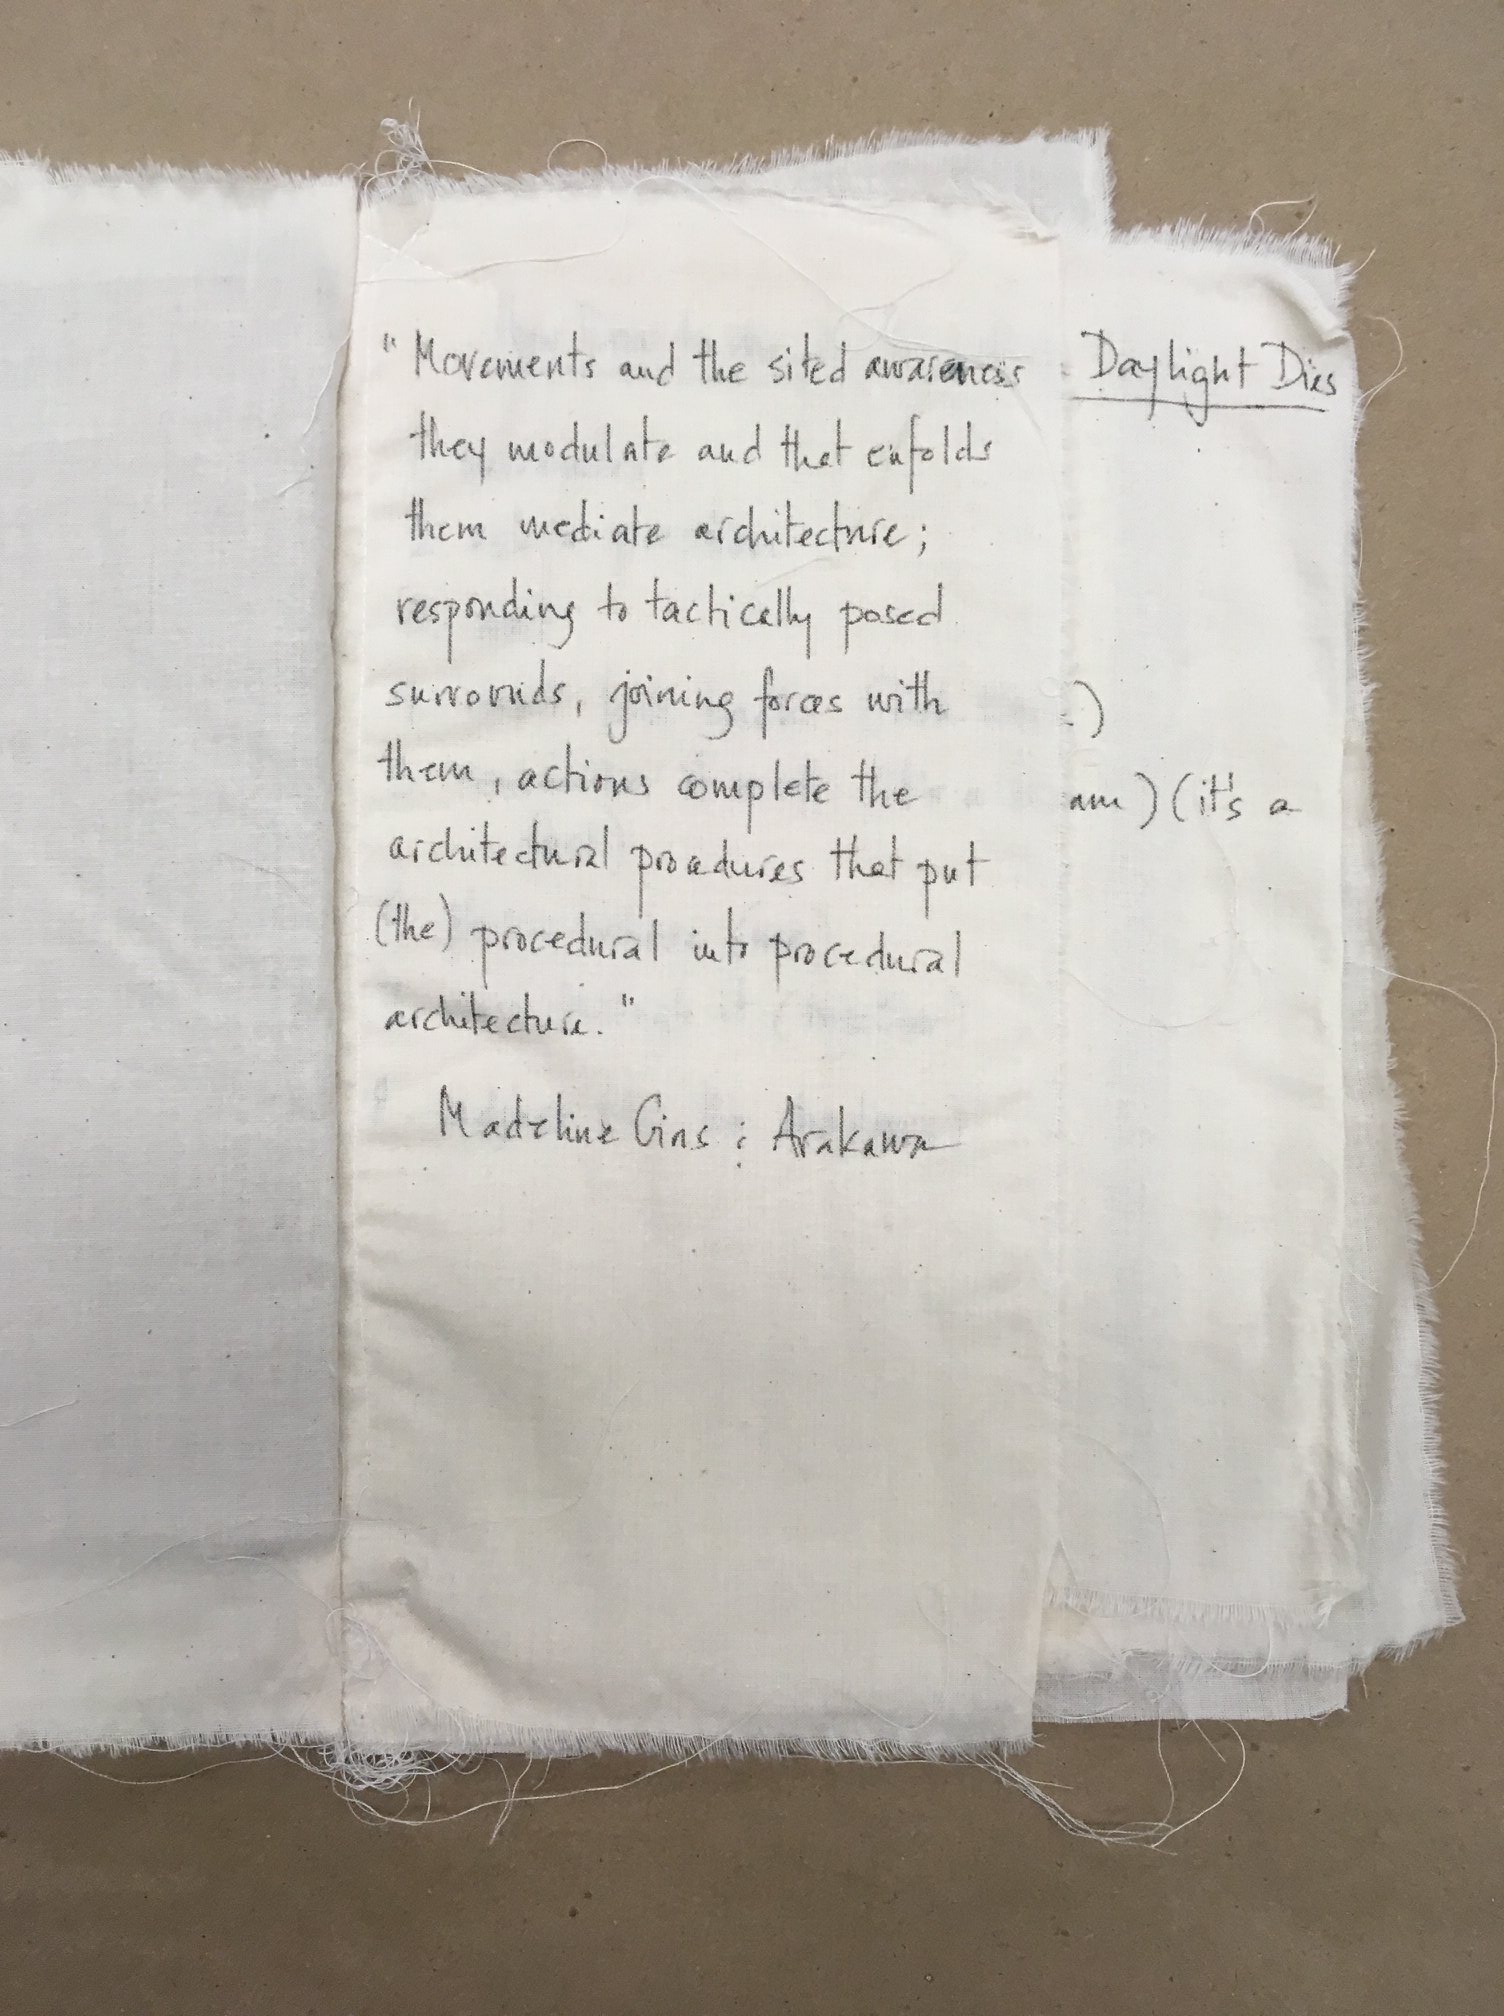 "Movements and the sited awareness
they modulate and that enfolds
them mediate architecture;
responding to tactically posed
surrounds, joining forces with
them, actions complete the
architectural procedures that put
(the) procedural into procedural
architecture."
Madeline Gins & Arakawa
Daylight Dies
)
am) (it's a